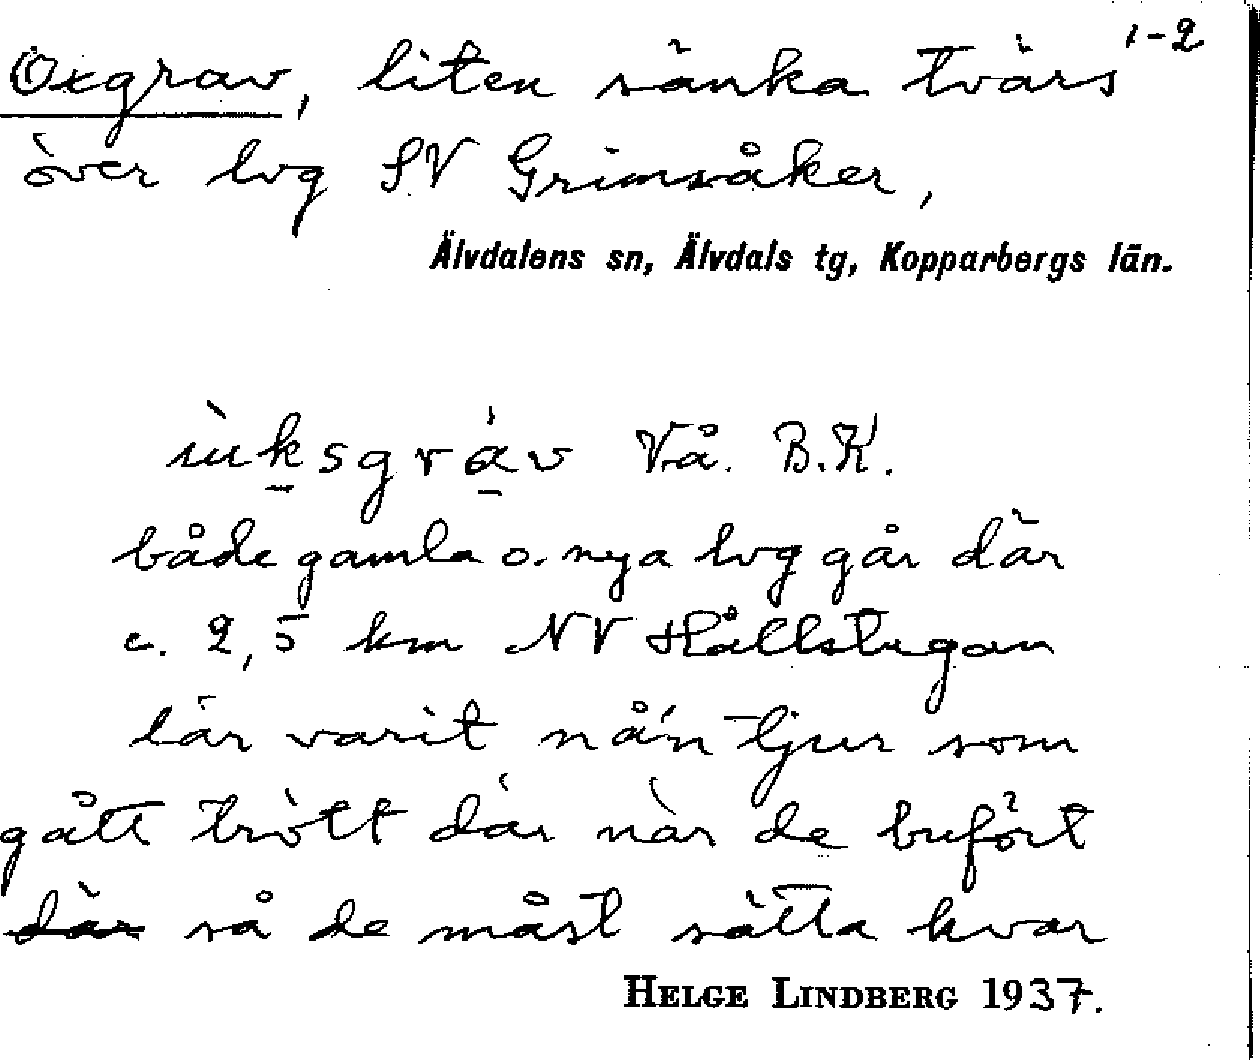 1-2
Oxgrav, liten sänka tvärs
över lvg SV Grimsåker,
Älvdalens sn, Älvdals tg, Kopparbergs län.
ùksgrav Vå. B.K.
både gamla o. nya lvg går där
c. 2,5 km NV Hållstugan
lär varit nå'n tjur som
gått trött där när de bufört
där så de måst sätta kvar
HELGE LINDBERG 1937.